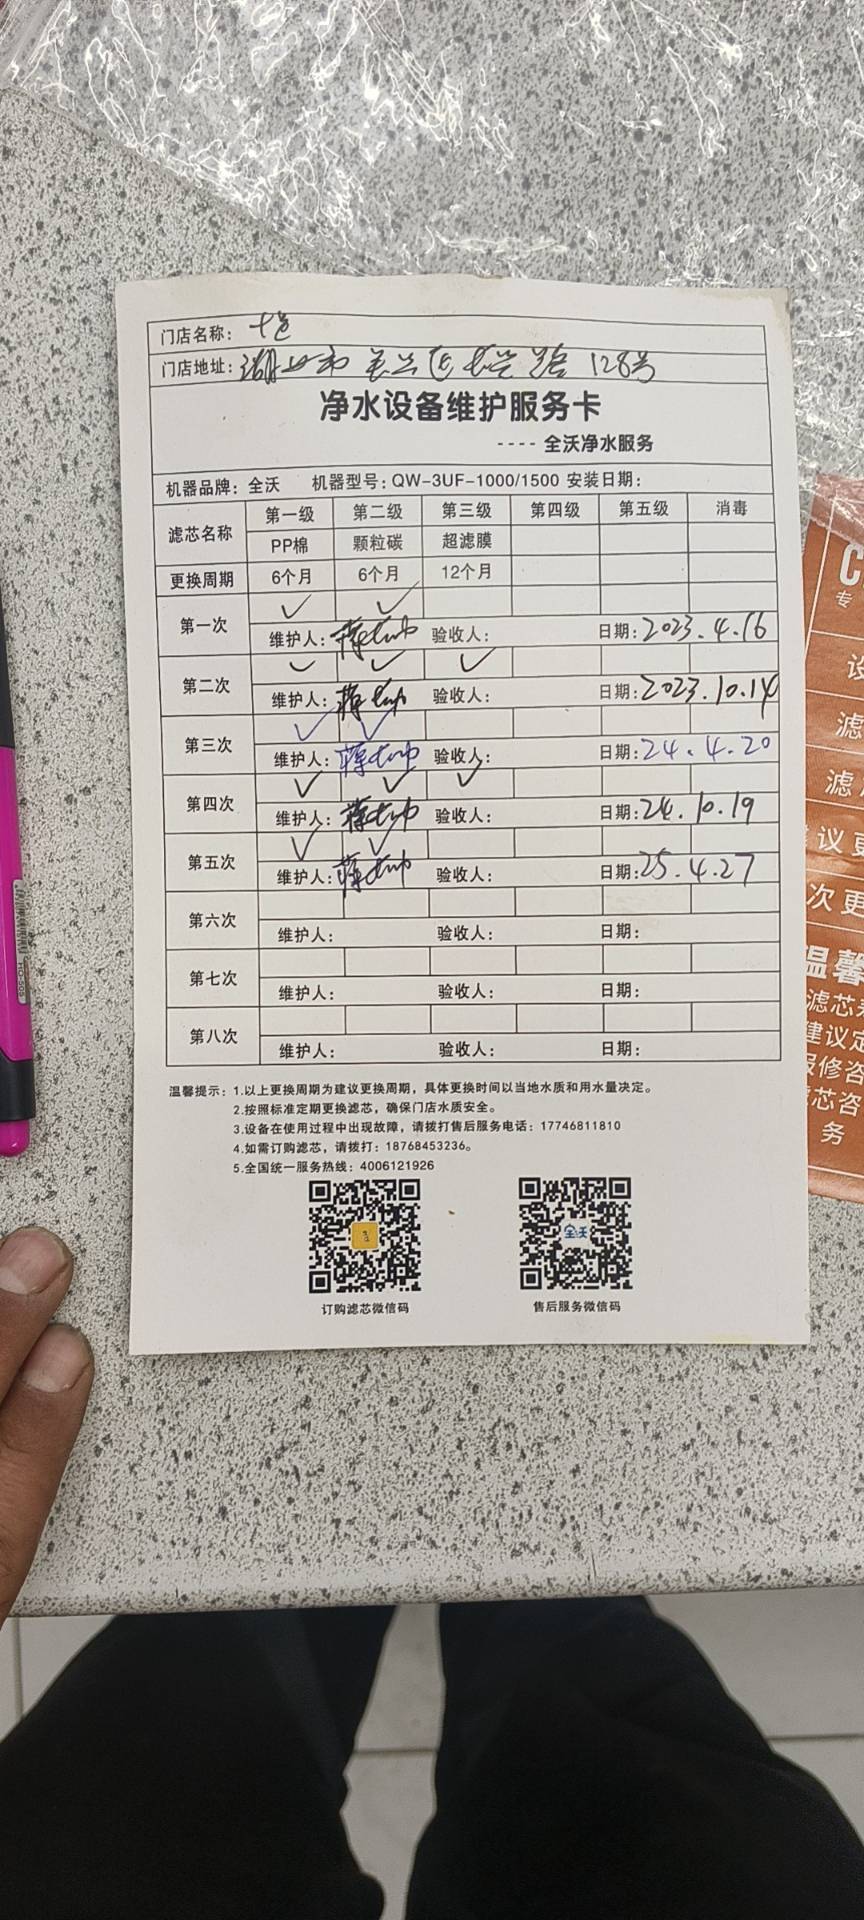 门店名称：
门店地址： 128号
净水设备维护服务卡
---- 全沃净水服务
机器品牌：全沃 机器型号：QW-3UF-1000/1500 安装日期：
滤芯名称 第一级 第二级 第三级 第四级 第五级 消毒
PP棉 颗粒碳 超滤膜
更换周期 6个月 6个月 12个月
第一次 ✓ ✓
维护人： 验收人： 日期：2023.4.16
第二次 ✓ ✓ ✓
维护人： 验收人： 日期：2023.10.14
第三次 ✓ ✓
维护人： 验收人： 日期：24.4.20
第四次 ✓ ✓ ✓
维护人： 验收人： 日期：24.10.19
第五次 ✓ ✓
维护人： 验收人： 日期：25.4.27
第六次
维护人： 验收人： 日期：
第七次
维护人： 验收人： 日期：
第八次
维护人： 验收人： 日期：
温馨提示：1.以上更换周期为建议更换周期，具体更换时间以当地水质和用水量决定。
2.按照标准定期更换滤芯，确保门店水质安全。
3.设备在使用过程中出现故障，请拨打售后服务电话：17746811810
4.如需订购滤芯，请拨打：18768453236。
5.全国统一服务热线：4006121926
全沃
订购滤芯微信码 售后服务微信码
C
专
设
滤
滤
议更
次更
温馨
滤芯
建议定
报修咨
滤芯咨
务